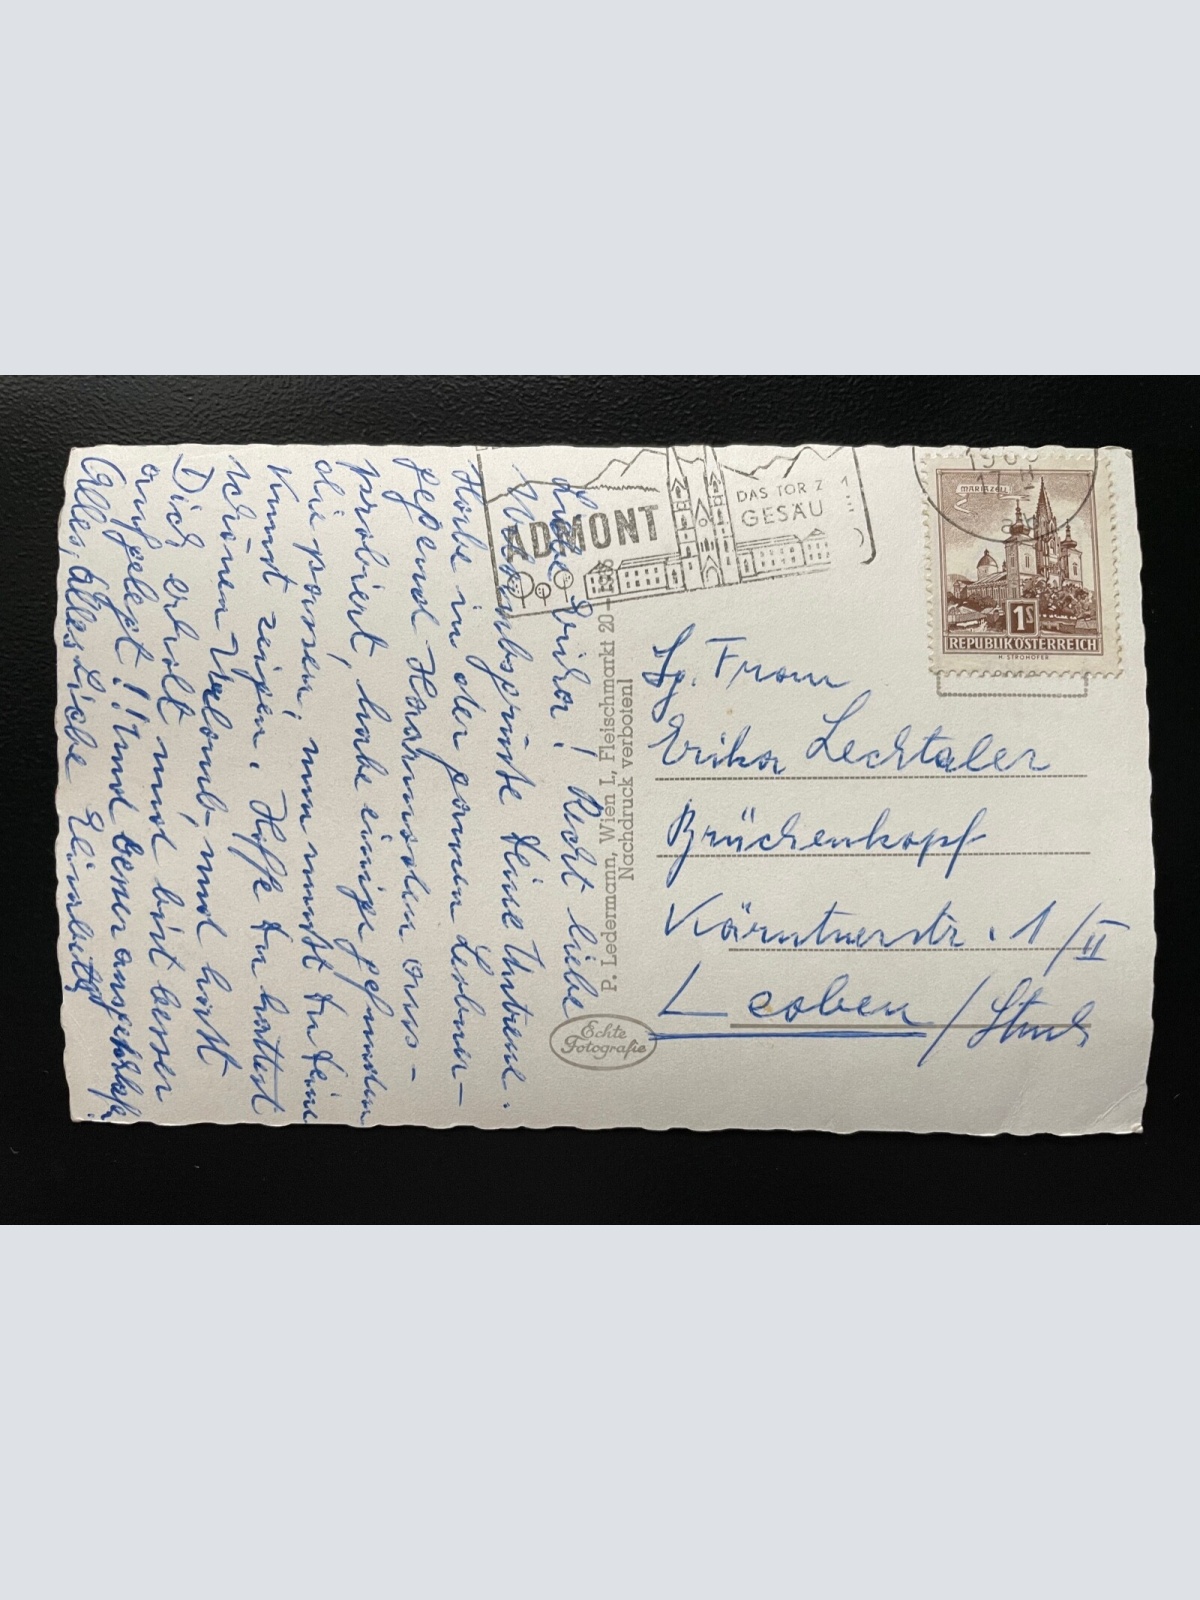 Liebe Erika! Recht liebe
Urlaubsgrüße Deine Untreue.
Habe in der ganzen Leobner-
gegend Haarmoden aus-
probiert, habe einige gefunden
die passen, nun musst Du Deine
Kunst zeigen. Hoffe Du hattest
schönen Urlaub, und hast
Dich erholt und bist besser
aufgelegt! Und besser
Alles, alles Liebe Elisabeth
ADMONT
DAS TOR Z
GESÄU
MARIAZELL
1S
REPUBLIK ÖSTERREICH
H. STROHOFER
P. Ledermann, Wien I., Fleischmarkt 20
Nachdruck verboten!
Echte
Fotografie
Sg. Frau
Erika Lechtaler
Brückenkopf
Kärntnerstr. 1/II
Leoben / Stmk